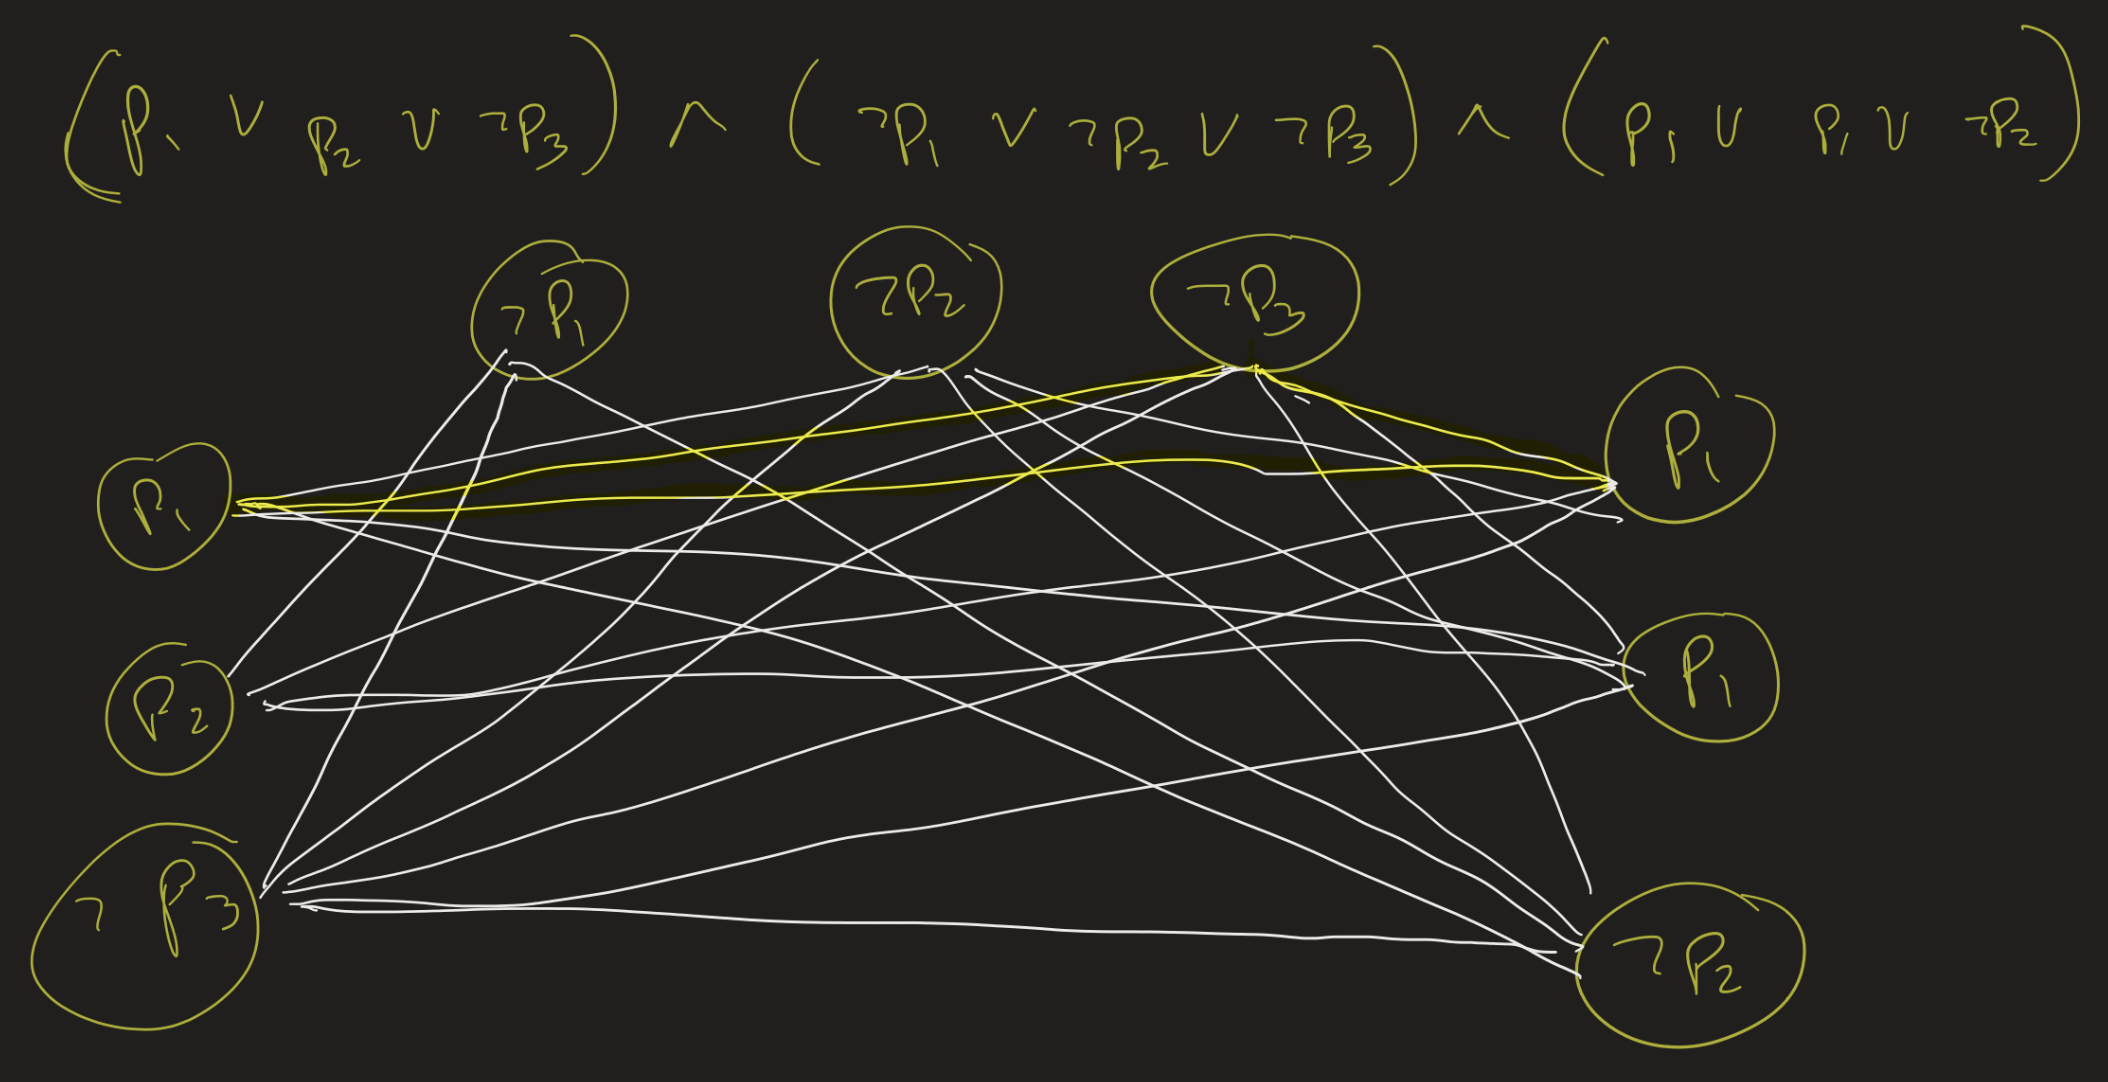 (P₁ ∨ P₂ ∨ ¬P₃) ∧ (¬P₁ ∨ ¬P₂ ∨ ¬P₃) ∧ (P₁ ∨ P₁ ∨ ¬P₂)
¬P₁ ¬P₂ ¬P₃
P₁ P₁
P₂ P₁
¬P₃ ¬P₂